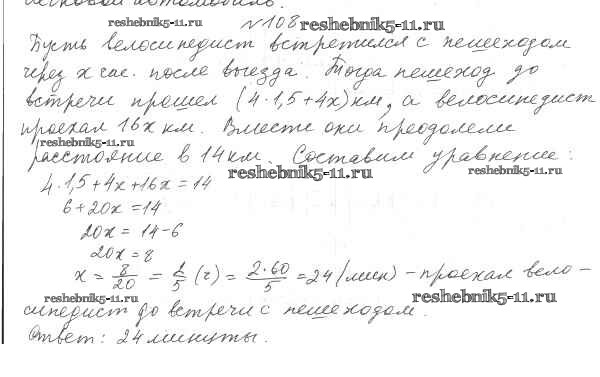 легковой автомобиль.
reshebnik5-11.ru
№108 reshebnik5-11.ru
Пусть велосипедист встретился с пешеходом
через x час. после выезда. Тогда пешеход до
встречи прошел (4·1,5+4x) км, а велосипедист
проехал 16x км. Вместе они преодолели
reshebnik5-11.ru
расстояние в 14 км. Составим уравнение:
reshebnik5-11.ru reshebnik5-11.ru
4·1,5+4x+16x=14
6+20x=14
20x=14-6
20x=8
x = 8/20 = 2/5 (ч) = 2·60/5 = 24 (мин) - проехал вело-
reshebnik5-11.ru reshebnik5-11.ru
сипедист до встречи с пешеходом.
Ответ: 24 минуты.